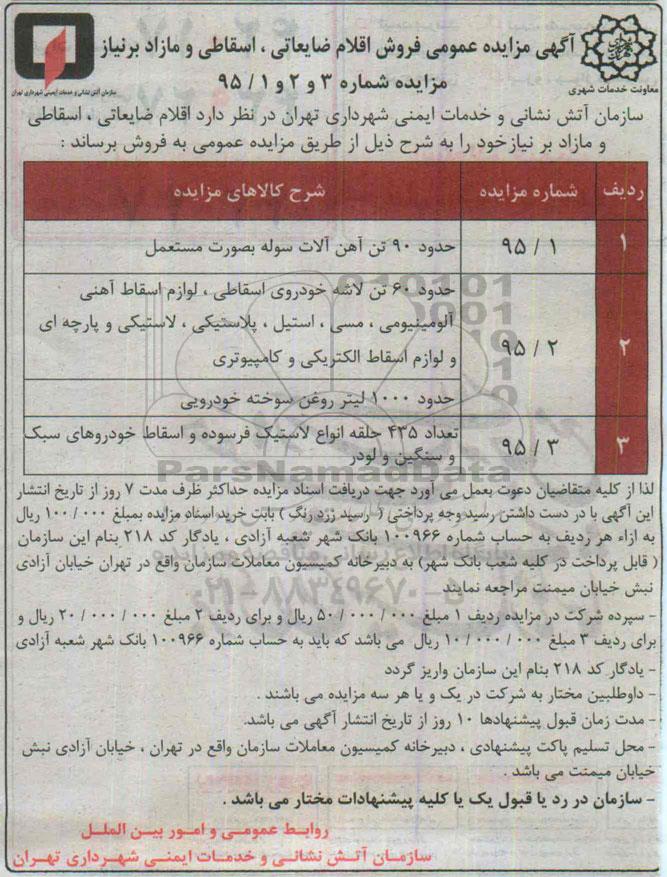 آگهی مزایده عمومی فروش اقلام ضایعاتی ، اسقاطی و مازاد برنیاز
مزایده شماره ۳ و ۲ و ۱ / ۹۵
معاونت خدمات شهری
سازمان آتش نشانی و خدمات ایمنی شهرداری تهران
سازمان آتش نشانی و خدمات ایمنی شهرداری تهران در نظر دارد اقلام ضایعاتی ، اسقاطی
و مازاد بر نیاز خود را به شرح ذیل از طریق مزایده عمومی به فروش برساند :
ردیف شماره مزایده شرح کالاهای مزایده
۱ ۱ / ۹۵ حدود ۹۰ تن آهن آلات سوله بصورت مستعمل
حدود ۶۰ تن لاشه خودروی اسقاطی ، لوازم اسقاط آهنی
۲ ۲ / ۹۵ آلومینیومی ، مسی ، استیل ، پلاستیکی ، لاستیکی و پارچه ای
و لوازم اسقاط الکتریکی و کامپیوتری
حدود ۱۰۰۰ لیتر روغن سوخته خودرویی
۳ ۳ / ۹۵ تعداد ۴۳۵ حلقه انواع لاستیک فرسوده و اسقاط خودروهای سبک
و سنگین و لودر
ParsNamadData
لذا از کلیه متقاضیان دعوت بعمل می آورد جهت دریافت اسناد مزایده حداکثر ظرف مدت ۷ روز از تاریخ انتشار
این آگهی با در دست داشتن رسید وجه پرداختی ( رسید زرد رنگ ) بابت خرید اسناد مزایده بمبلغ ۱۰۰/۰۰۰ ریال
به ازاء هر ردیف به حساب شماره ۱۰۰۹۶۶ بانک شهر شعبه آزادی ، یادگار کد ۲۱۸ بنام این سازمان
( قابل پرداخت در کلیه شعب بانک شهر) به دبیرخانه کمیسیون معاملات سازمان واقع در تهران خیابان آزادی
نبش خیابان میمنت مراجعه نمایند
۰۲۱-۸۸۳۴۹۶۷۰-۵
– سپرده شرکت در مزایده ردیف ۱ مبلغ ۵۰/۰۰۰/۰۰۰ ریال و برای ردیف ۲ مبلغ ۲۰/۰۰۰/۰۰۰ ریال و
برای ردیف ۳ مبلغ ۱۰/۰۰۰/۰۰۰ ریال می باشد که باید به حساب شماره ۱۰۰۹۶۶ بانک شهر شعبه آزادی
– یادگار کد ۲۱۸ بنام این سازمان واریز گردد
– داوطلبین مختار به شرکت در یک و یا هر سه مزایده می باشند .
– مدت زمان قبول پیشنهادها ۱۰ روز از تاریخ انتشار آگهی می باشد.
– محل تسلیم پاکت پیشنهادی ، دبیرخانه کمیسیون معاملات سازمان واقع در تهران ، خیابان آزادی نبش
خیابان میمنت می باشد .
– سازمان در رد یا قبول یک یا کلیه پیشنهادات مختار می باشد .
روابط عمومی و امور بین الملل
سازمان آتش نشانی و خدمات ایمنی شهرداری تهران